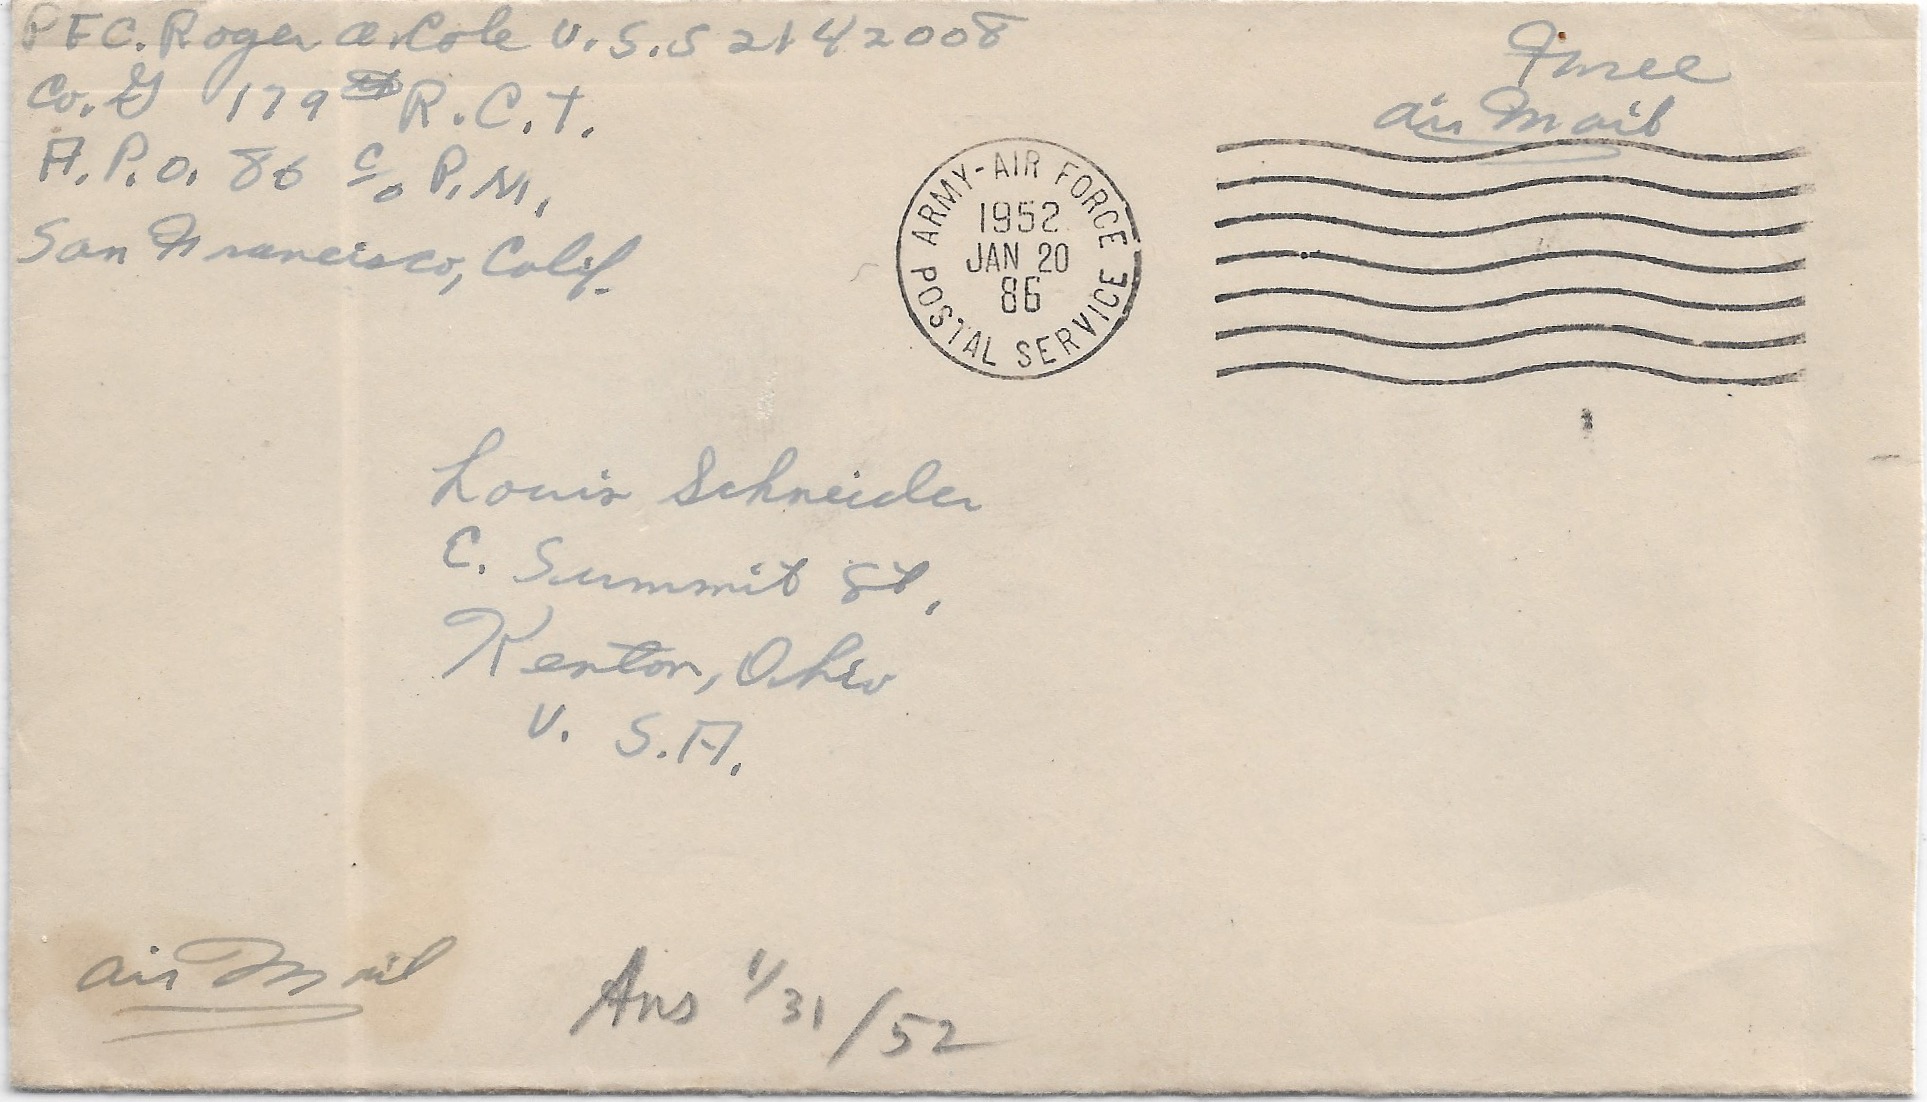 PFC. Roger A. Cole U.S.52142008
Co. G 179th R.C.T.
A.P.O. 86 c/o P.M.,
San Francisco, Calif.
Free
Air Mail
ARMY-AIR FORCE
1952
JAN 20
86
POSTAL SERVICE
Louis Schneider
E. Summit St.,
Kenton, Ohio
U. S.A.
Air Mail
Ans 1/31/52